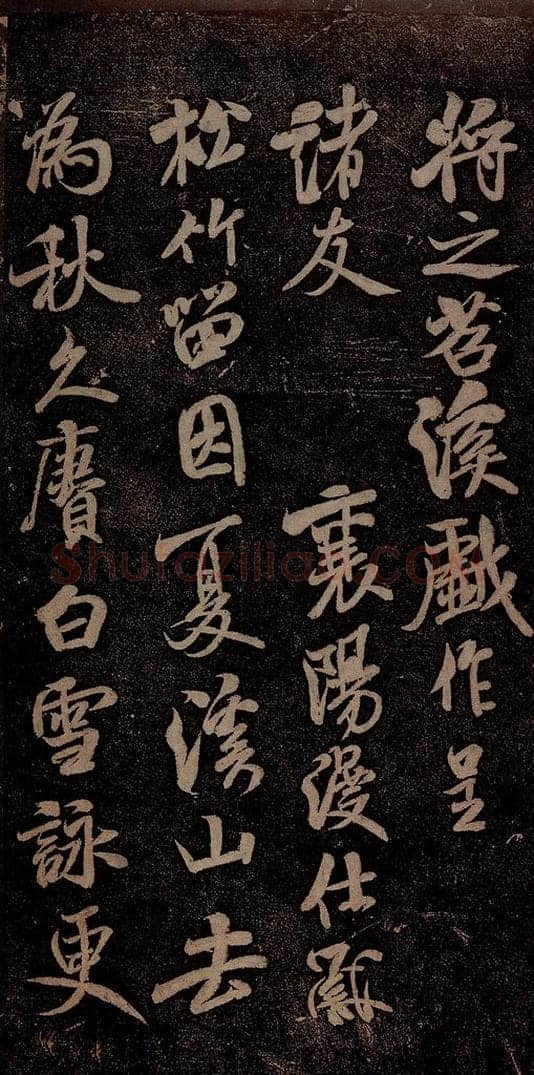 將之苕溪戲作呈
諸友 襄陽漫仕黻
松竹留因夏溪山去
為秋久賡白雪詠更
Shufaziliao.com